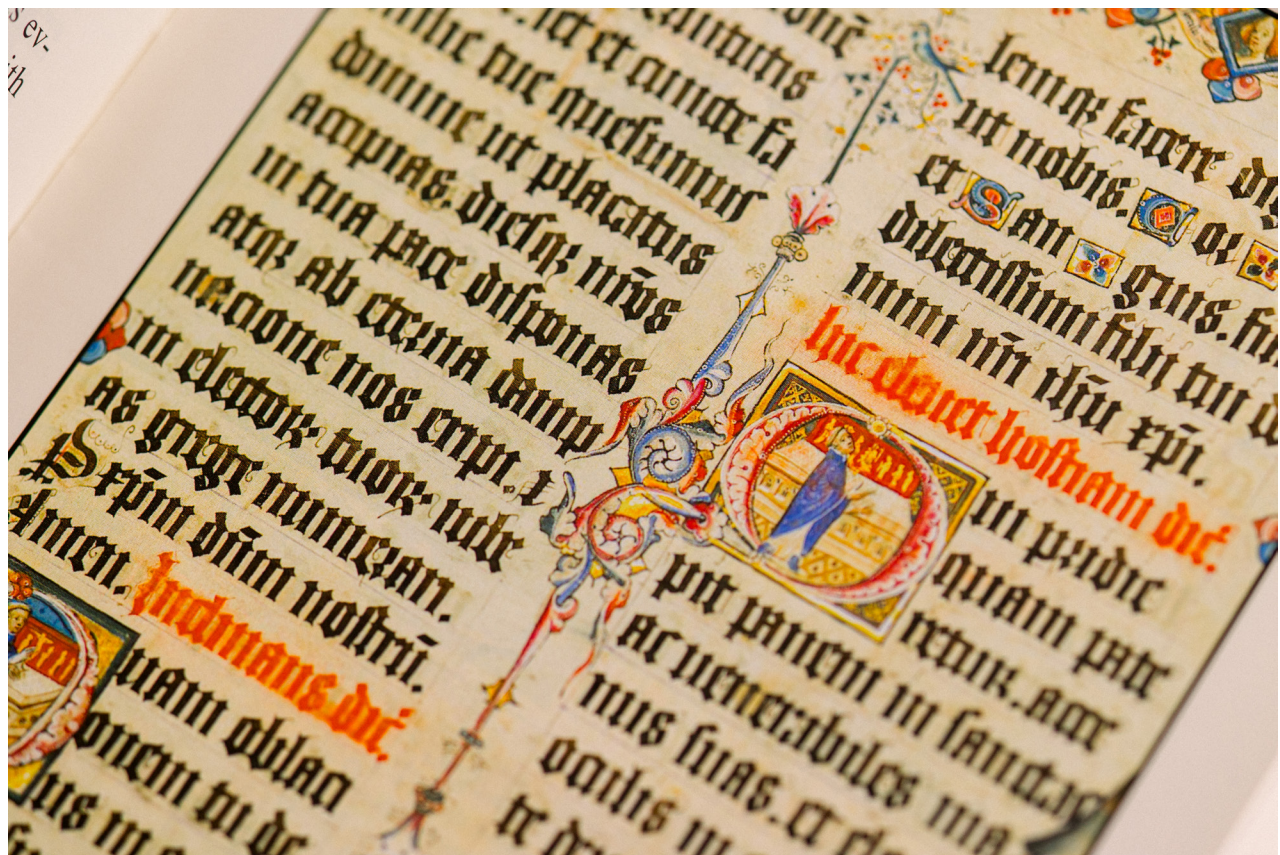 s ev-
ith
uitutis
sed et cuncte fa
milie tue quesumus
domine ut placatus
accipias. diesqꝫ nr̄os
in tua pace disponas
atqꝫ ab eterna damp
nacione nos eripi. ⁊
in electoꝝ tuoꝝ iube
as grege numerari.
Per xp̄m dn̄m nostrū.
Amen. Inclinans dic̄.
uam oblaci
onem tu de
us in
lemqꝫ facere dig
ut nobis. Cor
et San
guis. fi
dilectissimi filij tui d
mini nr̄i ih̄u xp̄i.
hic eleuet hostiam dic̄.
Qui pridie
quam pate
retur. acce
pit panem in sanctas
ac uenerabiles ma
nus suas. et ele
oculis in
te de